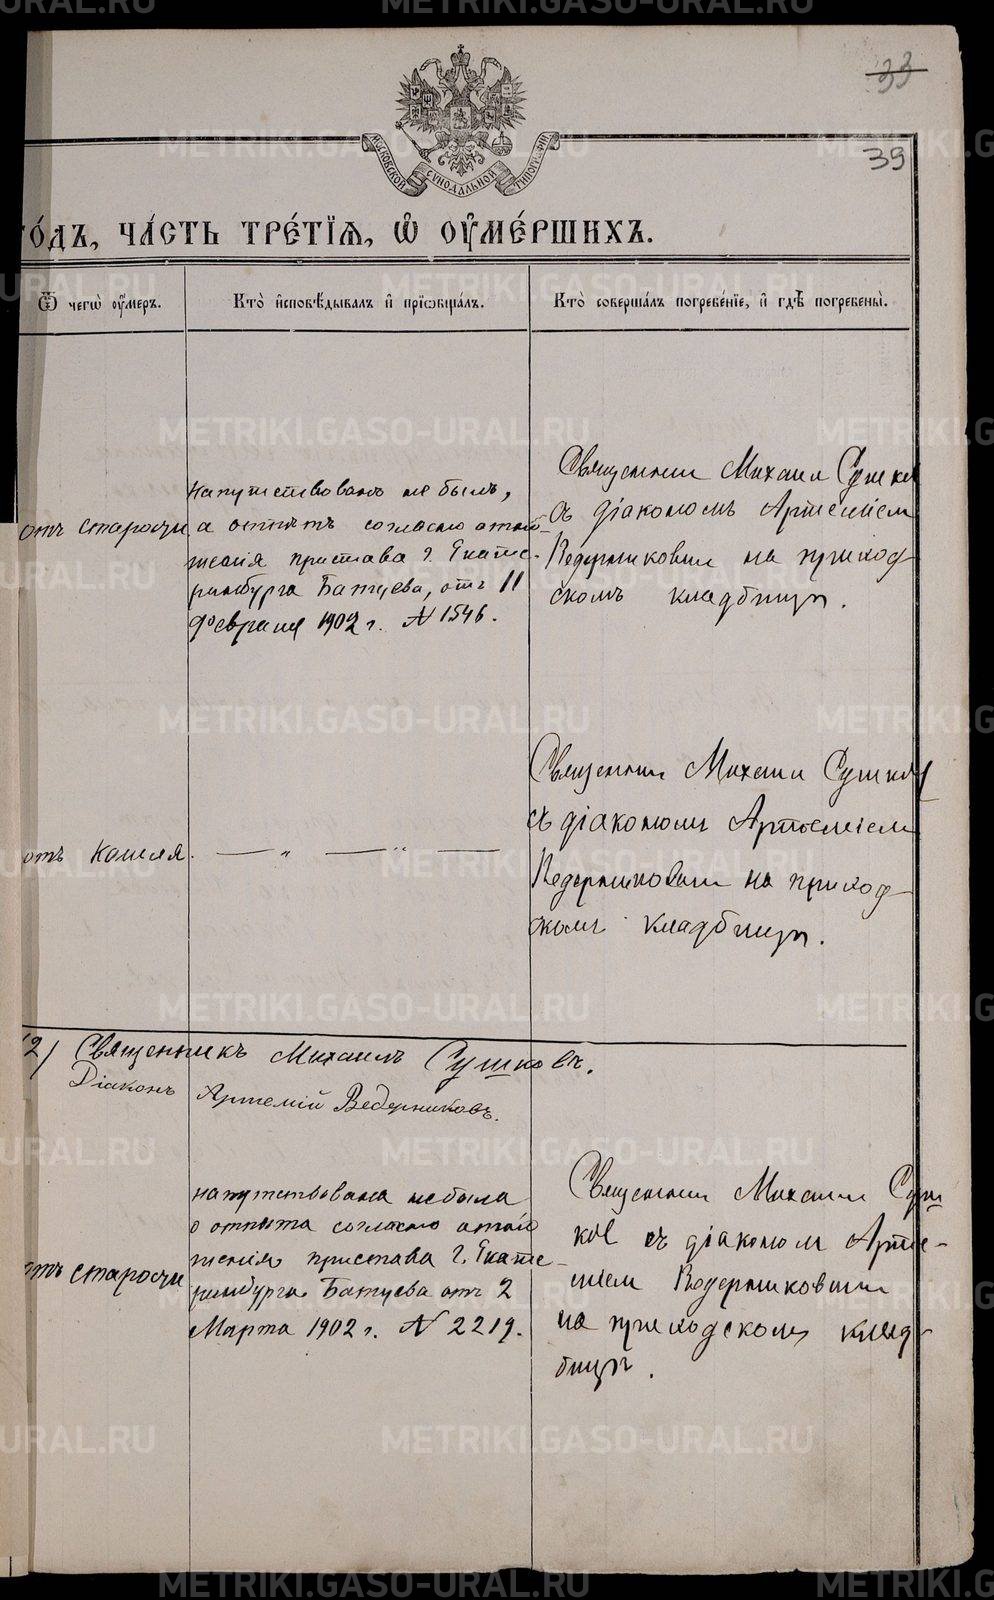 33
39
МОСКОВСКОЙ СѴНОДАЛЬНОЙ ТИПОГРАФІИ
го́дъ, ча́сть тре́тїѧ, ѡ҆ ᲂу҆ме́ршихъ.
Ѿ чегѡ̀ ᲂу҆́меръ.
Кто̀ и҆сповѣ́дывалъ и҆ прїѡбща́лъ.
Кто̀ соверша́лъ погребе́нїе, и҆ гдѣ̀ погребены̀.
отъ старости
напутствованъ не былъ,
а отпѣтъ согласно отно-
шенія пристава г. Екате-
ринбурга Батуева, отъ 11
Февраля 1902 г. № 1546.
Священник Михаил Сушков
съ діакономъ Артеміем
Ведерниковым на приход-
скомъ кладбищѣ.
отъ кашля.
— „ — „ —
Священник Михаил Сушков
съ діаконом Артеміем
Ведерниковым на приход-
ском кладбищѣ.
2) Священникъ Михаилъ Сушковъ.
Діаконъ Артемій Ведерниковъ.
отъ старости
напутствована небыла
о отпѣта согласно отно-
шенія пристава г. Екате-
ринбурга Батуева отъ 2
Марта 1902 г. № 2219.
Священник Михаил Суш-
ков съ діаконом Арте-
міем Ведерниковым
на приходском клад-
бищѣ.
METRIKI.GASO-URAL.RU